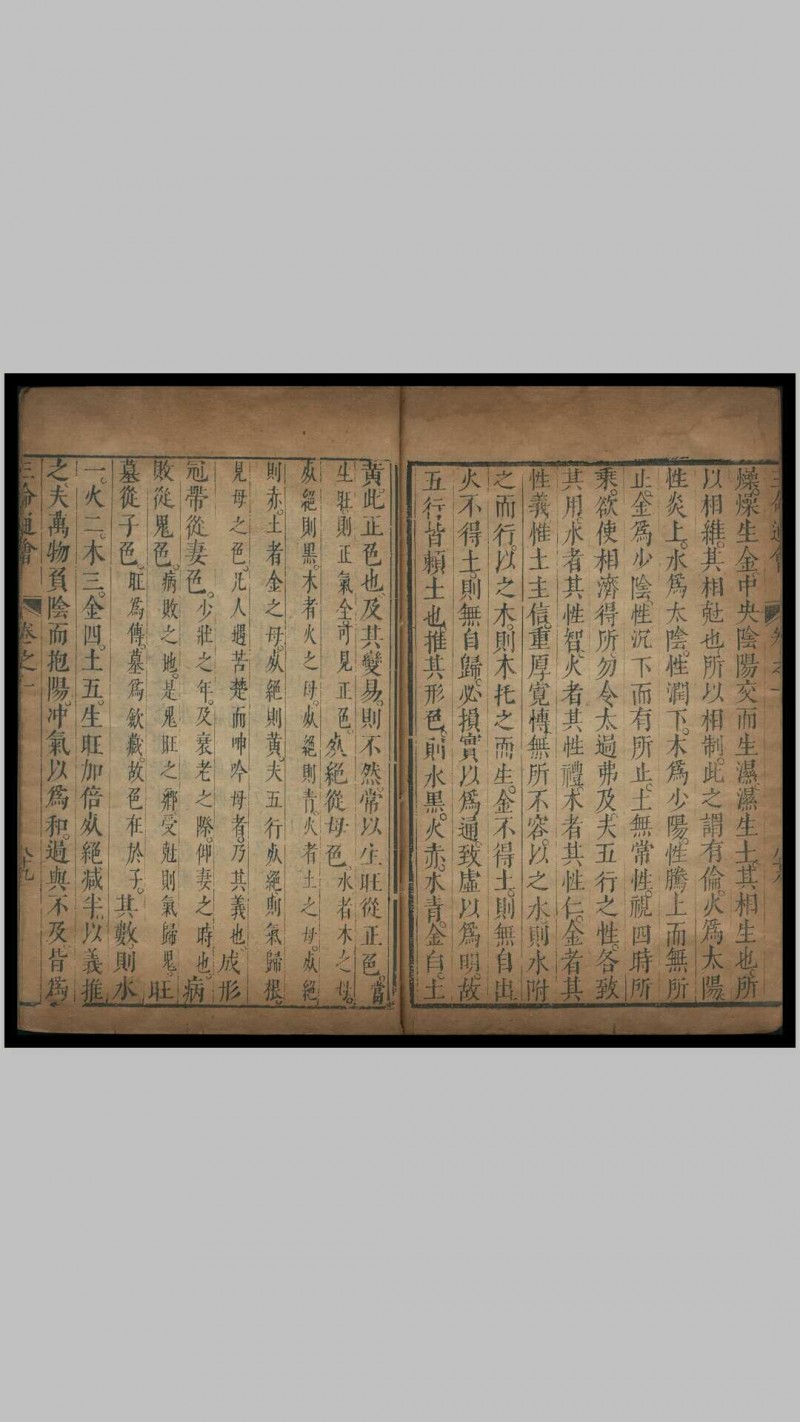 三命通會 卷之一
燥燥生金中央陰陽交而生濕濕生土其相生也所
以相維其相尅也所以相制此之謂有倫火爲太陽
性炎上水爲太陰性潤下木爲少陽性騰上而無所
止金爲少陰性沉下而有所止土無常性視四時所
乘欲使相濟得所勿令太過弗及夫五行之性各致
其用水者其性智火者其性禮木者其性仁金者其
性義惟土主信重厚寛愽無所不容以之水則水附
之而行以之木則木托之而生金不得土則無自出
火不得土則無自歸必損實以爲通致虛以爲明故
五行皆頼土也推其形色則水黑火赤木青金白土
黃此正色也及其變易則不然常以生旺從正色當
生旺則正氣全可見正色㱙絕從母色水者木之母
㱙絕則黑木者火之母㱙絕則青火者土之母㱙絕
則赤土者金之母㱙絕則黃夫五行㱙絕則氣歸根
見母之色凡人遇苦楚而呻吟母者乃其義也成形
冠帶從妻色少壯之年及衰老之際仰妻之時也病
敗從鬼色病敗之地是鬼旺之鄉受尅則氣歸鬼旺
墓從子色旺爲傳墓爲斂藏故色在於子其數則水
一火二木三金四土五生旺加倍㱙絕减半以義推
之夫萬物負陰而抱陽冲氣以爲和過與不及皆爲
三命通會 卷之一